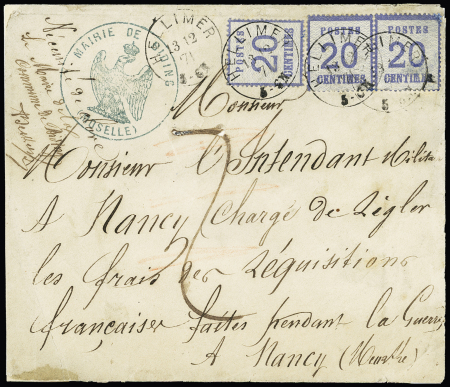 MAIRIE DE BIDING
(MOSELLE)
HELLIMER
13 12
71
POSTES
20
CENTIMES
POSTES
20
CENTIMES
POSTES
20
CENTIMES
HELLIMER
5-6N
HELLIMER
Le Maire de la
Commune de
Monsieur
Monsieur l'Intendant Milit
A Nancy Chargé de Régler
les frais des Réquisitions
françaises faites pendant la Guerre
A Nancy (Meurthe)